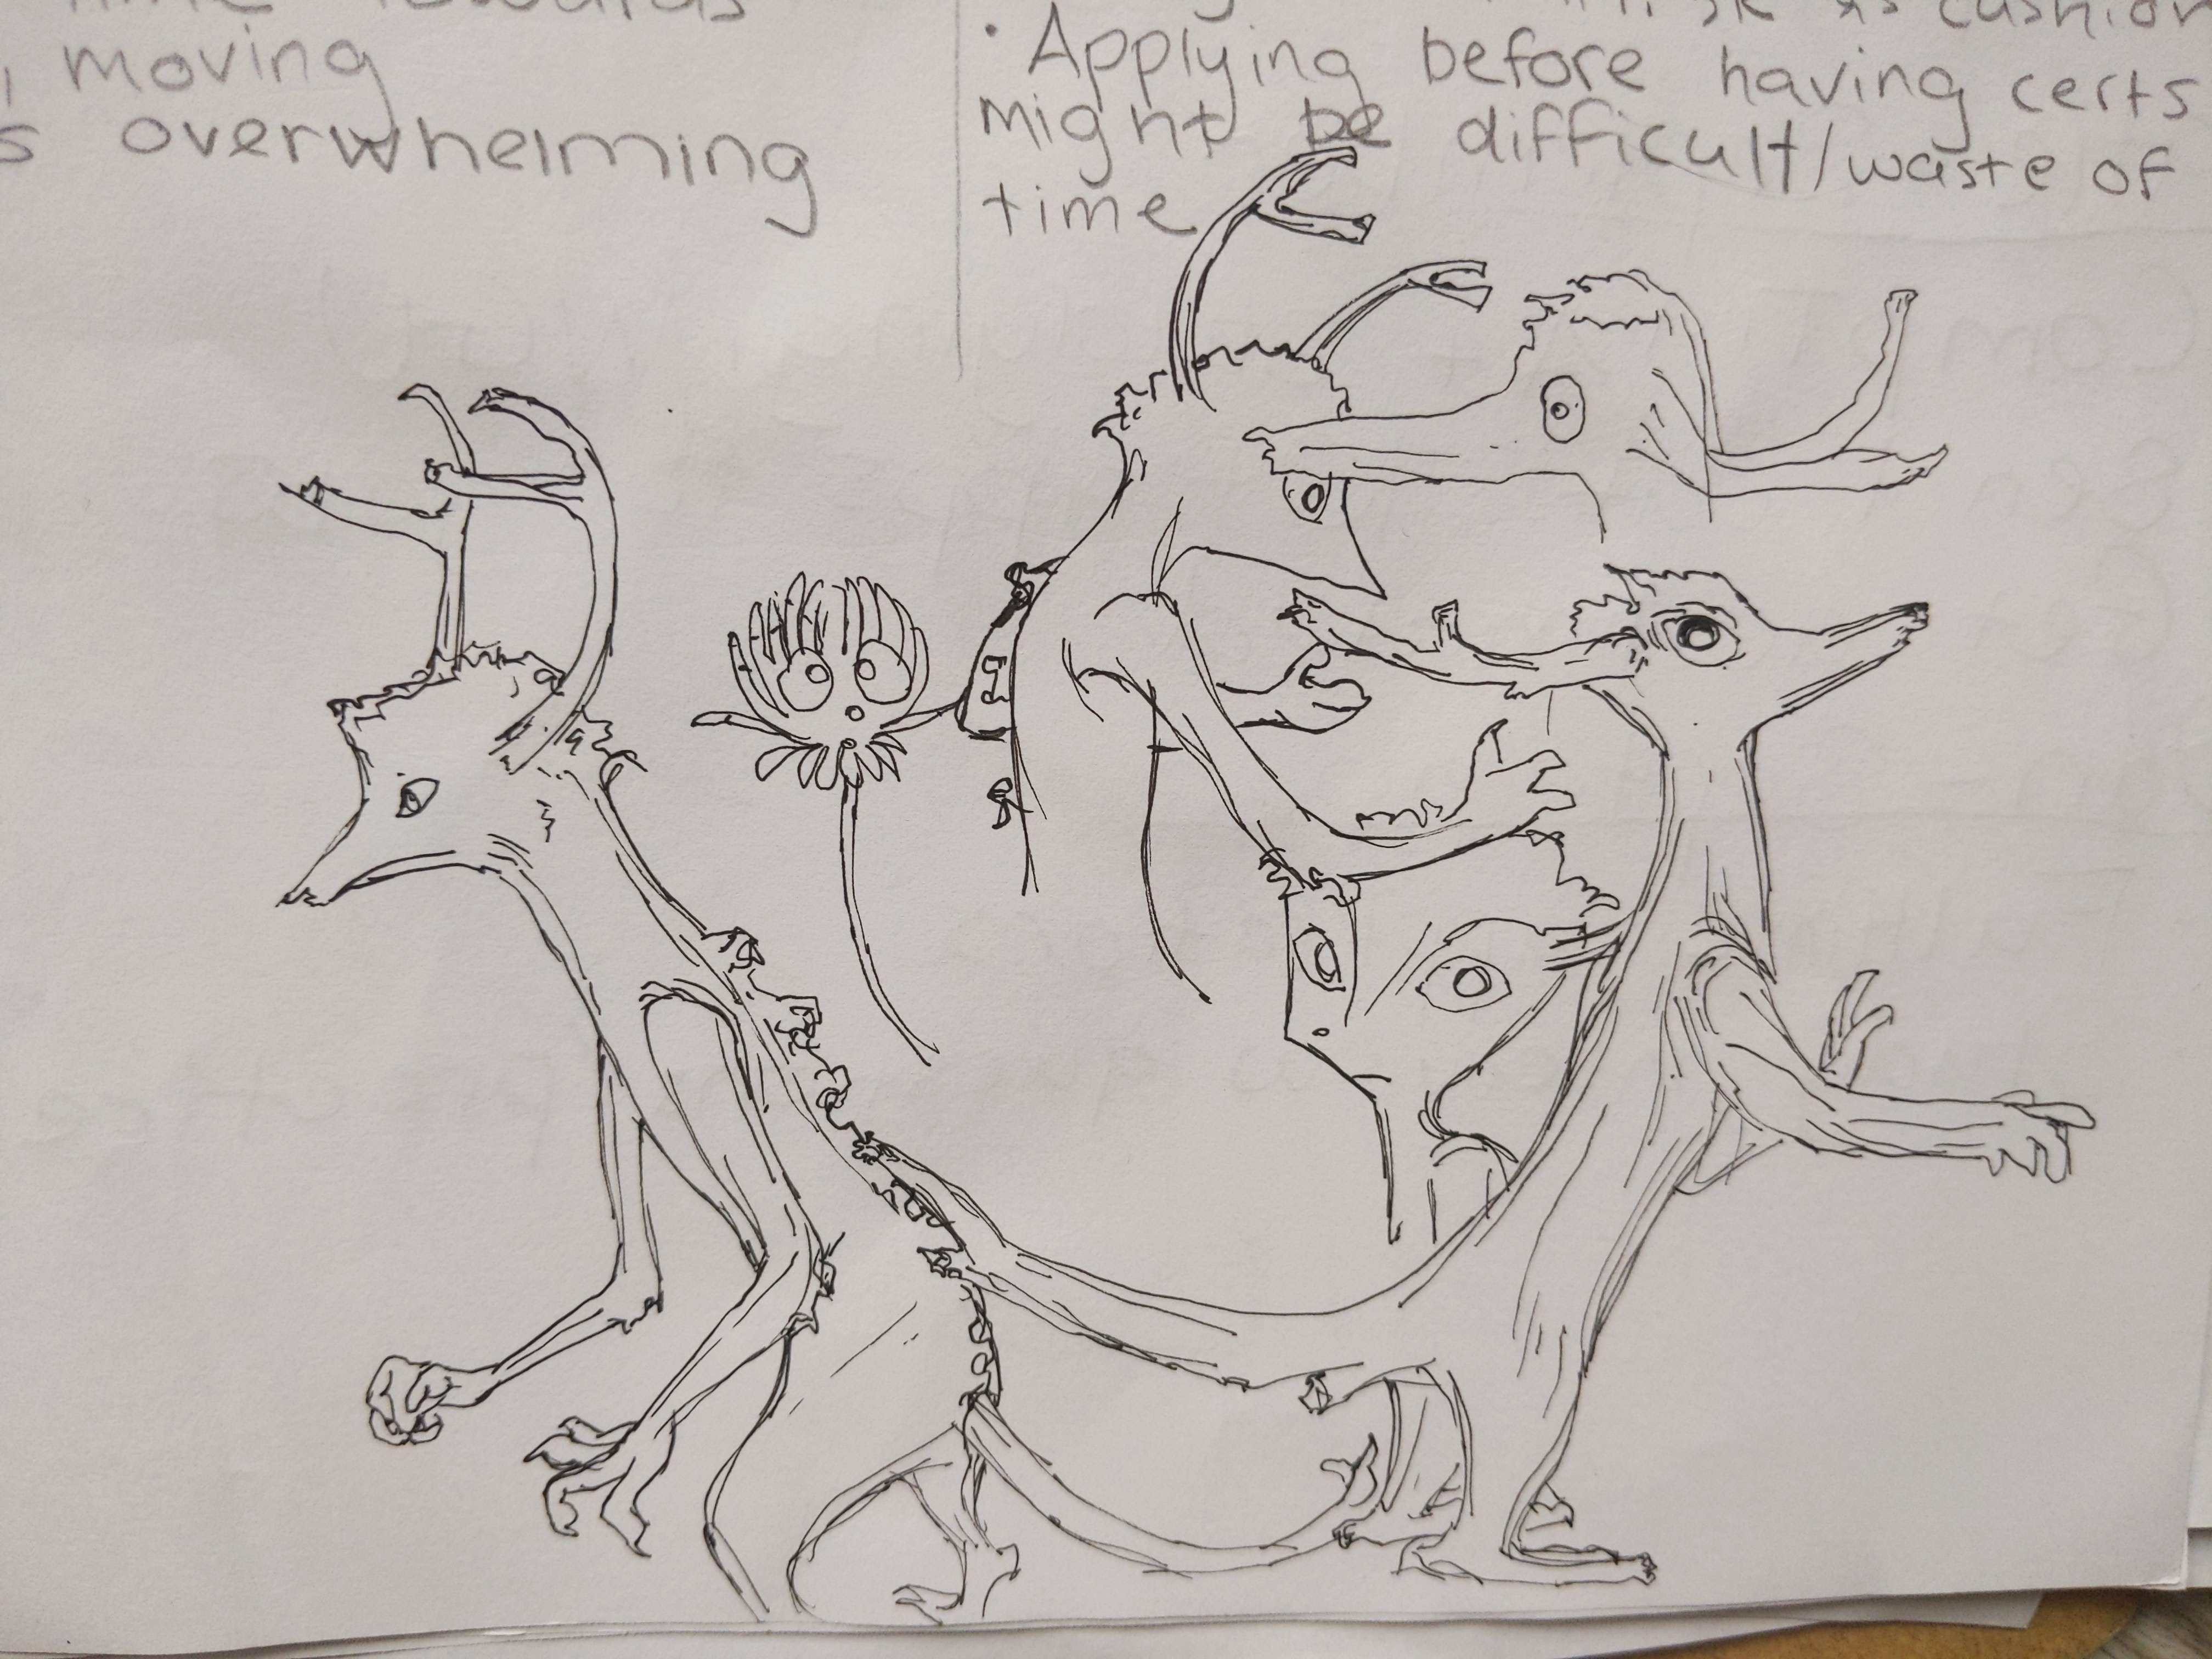 time towards
, moving
s overwhelming
as cushion
· Applying before having certs
might be difficult/waste of
time